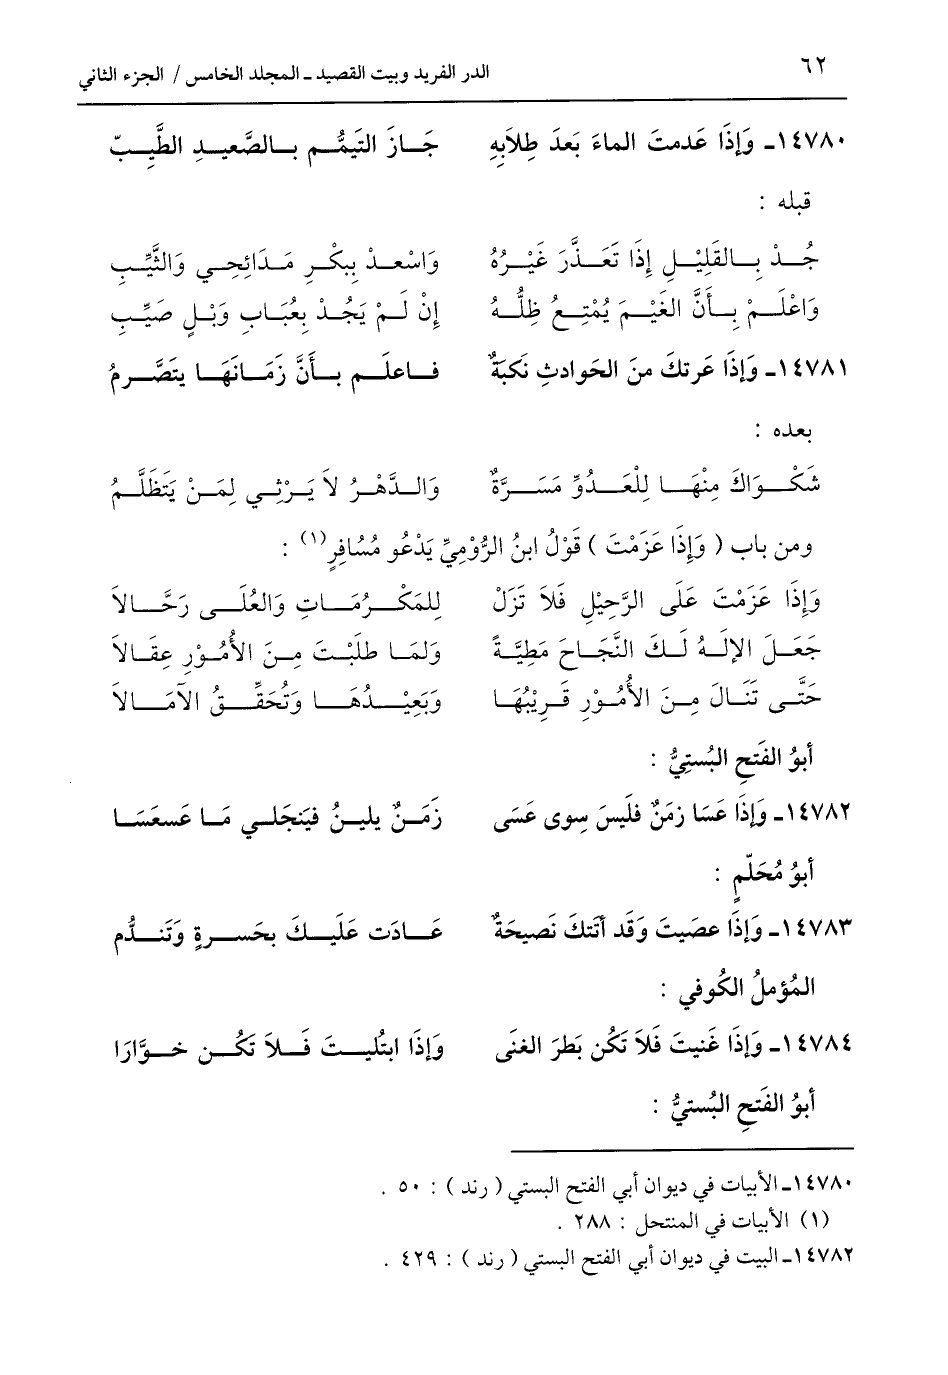 ٦٢
الدر الفريد وبيت القصيد ـ المجلد الخامس / الجزء الثاني
١٤٧٨٠ـ وَإذَا عَدمتَ الماءَ بَعدَ طِلاَبِهِ جَـازَ التَيمُّـم بـالصَّعيـدِ الطَّيِّـبِ
قبله :
جُـدْ بِـالقَلِيْـلِ إِذَا تَعَـذَّرَ غَيْـرُهُ وَاسْعـدْ بِبكْـرِ مَـدَائِحـي وَالثَّيِّـبِ
وَاعْلَـمْ بِـأَنَّ الغَيْـمَ يُمْتِـعُ ظِلُّـهُ إِنْ لَـمْ يَجُـدْ بِعُبَـابِ وَبْـلٍ صَيِّـبِ
١٤٧٨١ـ وَإذَا عَرتكَ منَ الحَوادثِ نَكبَةٌ فـاعلَـم بـأَنَّ زَمَـانَهَـا يتَصَّـرمُ
بعده :
شَكْـوَاكَ مِنْهَـا لِلْعَـدُوِّ مَسَـرَّةٌ وَالـدَّهْـرُ لاَ يَـرْثِـي لِمَـنْ يَتَظَلَّـمُ
ومن باب ( وَإِذَا عَزَمْتَ ) قَوْلُ ابنُ الرُّوْمِيِّ يَدْعُو مُسَافِرٍ(١) :
وَإِذَا عَزَمْتَ عَلَى الرَّحِيْلِ فَلاَ تَزَلْ لِلمَكْـرُمَـاتِ وَالعُلَـى رَحَّـالاَ
جَعَـلَ الإِلَـهُ لَـكَ النَّجَـاحَ مَطِيَّـةً وَلمَـا طلَبْـتَ مِـنَ الأُمُـوْرِ عِقَـالاَ
حَتَّـى تَنَـالَ مِـنَ الأُمُـوْرِ قَـرِيْبُهَـا وَبَعِيْـدُهَـا وَتُحَقِّـقُ الآمَـالاَ
أبوُ الفَتحِ البُستِيُّ :
١٤٧٨٢ـ وَإذَا عَسَا زمَنٌ فلَيسَ سِوى عَسَى زَمَـنٌ يليـنُ فيَنجَلـي مَـا عَسعَسَـا
أبوُ مُحَلّمٍ :
١٤٧٨٣ـ وَإذَا عصَيتَ وَقَد أتَتكَ نَصيحَةٌ عَـادَت عَلَيـكَ بحَسـرةٍ وَتَنـدُّم
المُؤملُ الكُوفي :
١٤٧٨٤ـ وَإذَا غَنيتَ فَلاَ تَكُن بَطرَ الغنَى وَإذَا ابتُليـتَ فَـلاَ تَكُـن خـوَّارَا
أبوُ الفَتحِ البُستيُّ :
١٤٧٨٠ـ الأبيات في ديوان أبي الفتح البستي ( رند ) : ٥٠ .
(١) الأبيات في المنتحل : ٢٨٨ .
١٤٧٨٢ـ البيت في ديوان أبي الفتح البستي ( رند ) : ٤٢٩ .